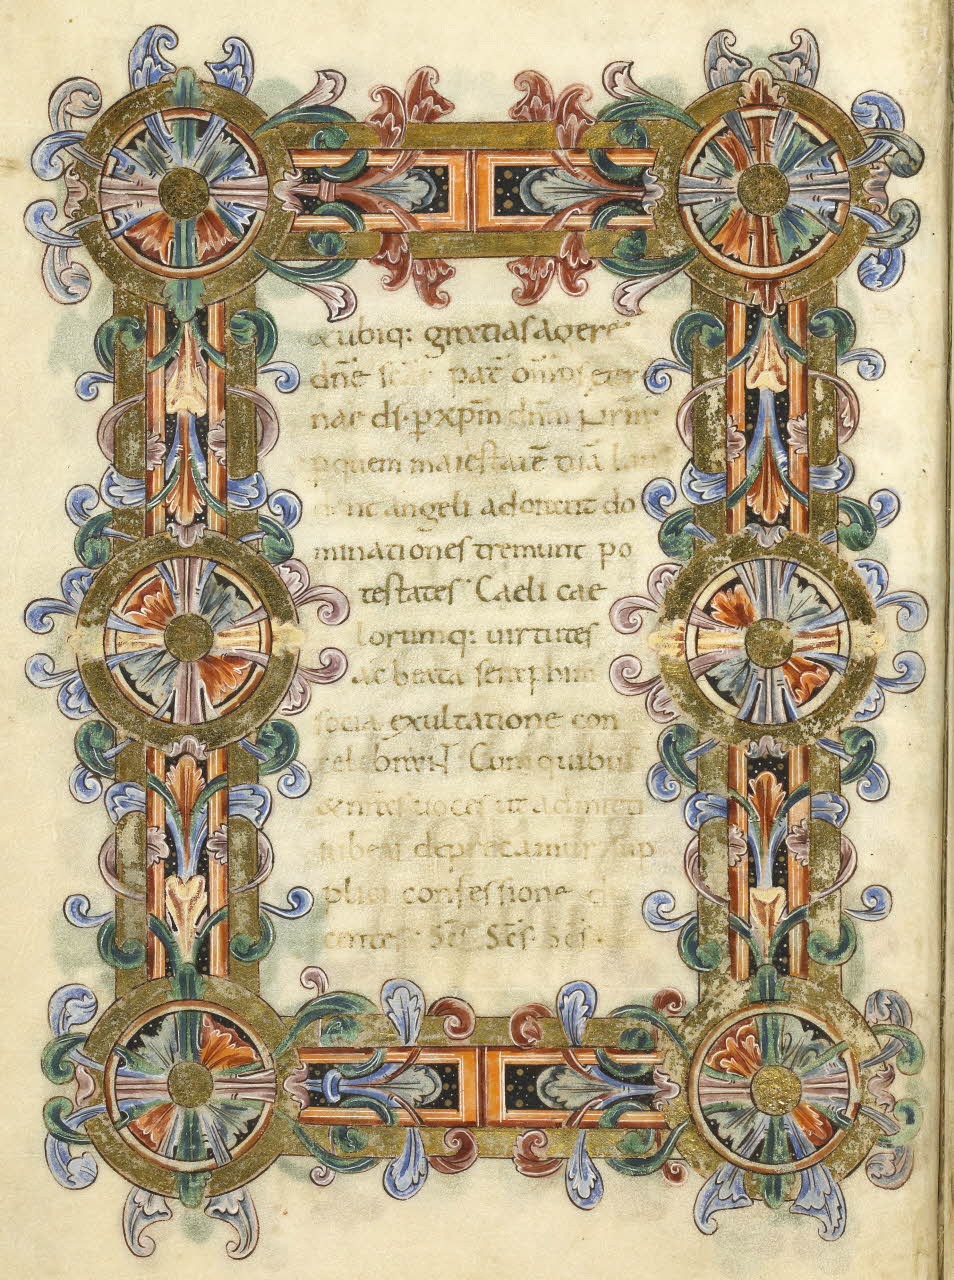 & ubiq: gratias agere
dn̄e sc̄e pat̄ om̄ps eter
nae ds̄ p xp̄m dn̄m nr̄m
p quem maiestatē tuā lau
dant angeli adorant do
minationes tremunt po
testates Caeli cae
lorumq: uirtutes
ac beata seraphim
socia exultatione con
celebrant Cum quibus
& nr̄as uoces ut admitti
iubeas deprecamur sup
plici confessione di
centes Sc̄s Sc̄s Sc̄s